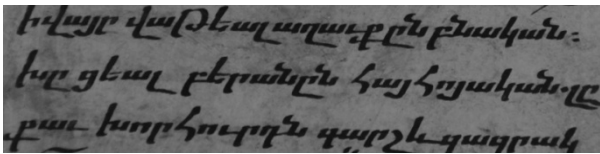 ի վայր վաթեալ աղաւքըն բնական։
խըցեալ բերանըն հայհոյական.ըը
քաւ խորհուրդն գարշև գազրակ